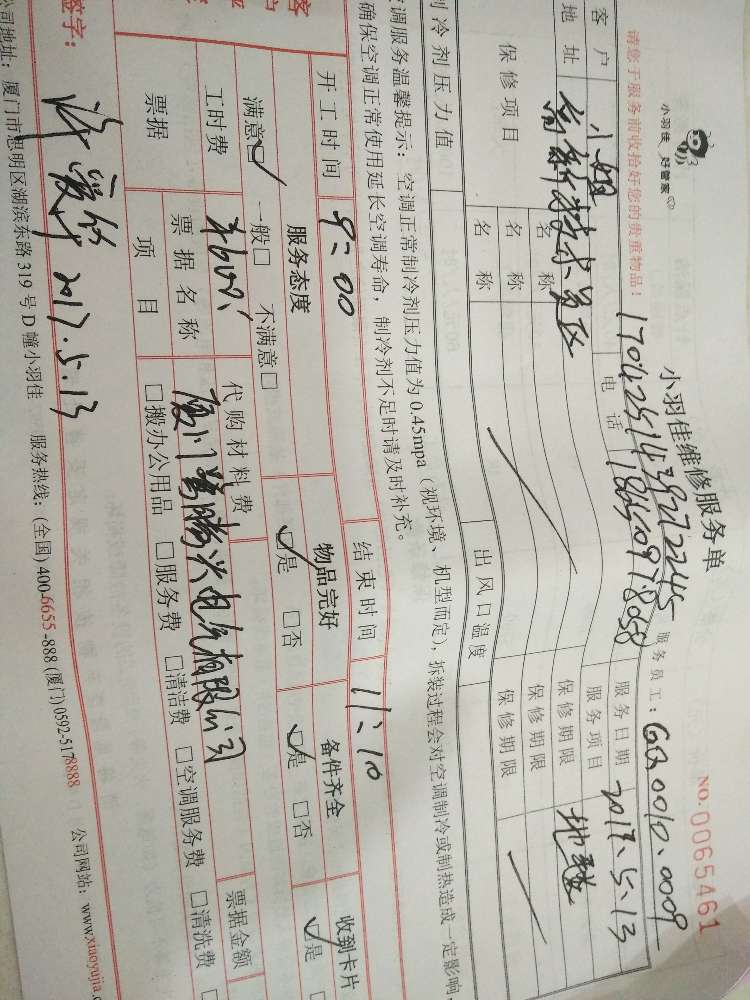 小羽佳 好管家
小羽佳维修服务单
NO. 0065461
请您于服务前收拾好您的贵重物品！
服务员工：GQ0010.0009
客户 小姐 电话 18650978058 服务日期 2017.5.13
地址 高新技术园区 服务项目 地毯
保修项目 名称 保修期限
名称 保修期限
名称 保修期限
制冷剂压力值 出风口温度
空调服务温馨提示：空调正常制冷剂压力值为0.45mpa（视环境、机型而定），拆装过程会对空调制冷或制热造成一定影响，
确保空调正常使用延长空调寿命，制冷剂不足时请及时补充。
开工时间 9:00 结束时间 11:10
服务态度 物品完好 备件齐全 收到卡片
满意☑ 一般□ 不满意□ ☑是 □否 ☑是 □否 ☑是
工时费 代购材料费
票据 票据名称 票据金额
项目 □搬办公用品 □服务费 □清洁费 □空调服务费 □清洗费
签字： 2017.5.13
公司地址：厦门市思明区湖滨东路319号D幢小羽佳 服务热线：(全国) 400-6655-888 (厦门) 0592-5178888 公司网站：www.xiaoyujia.c